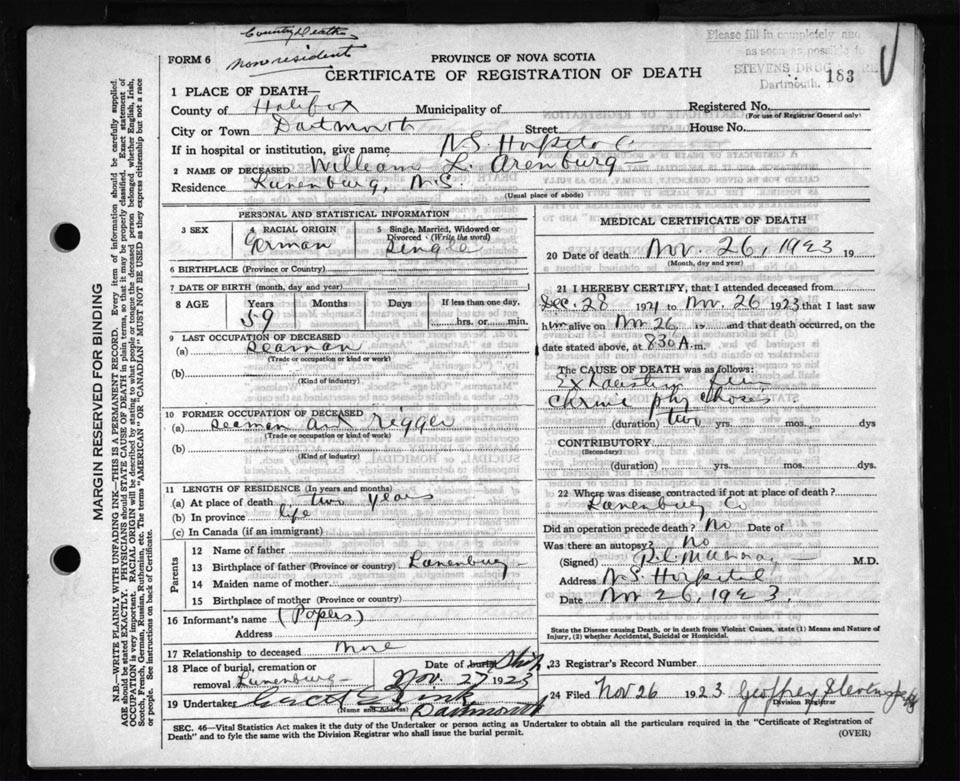 County Death
non resident
Please fill in completely and
as soon as possible to
STEVENS DRUG STORE
Dartmouth,
183
FORM 6
PROVINCE OF NOVA SCOTIA
CERTIFICATE OF REGISTRATION OF DEATH
1 PLACE OF DEATH—
County of Halifax Municipality of
Registered No.
(For use of Registrar General only)
City or Town Dartmouth Street House No.
If in hospital or institution, give name N.S. Hospital
2 NAME OF DECEASED William L. Arenburg
Residence Lunenburg, N.S.
(Usual place of abode)
PERSONAL AND STATISTICAL INFORMATION
3 SEX
4 RACIAL ORIGIN
German
5 Single, Married, Widowed or
Divorced (Write the word)
Single
6 BIRTHPLACE (Province or Country)
7 DATE OF BIRTH (month, day and year)
8 AGE Years Months Days If less than one day,
59 hrs. or min.
9 LAST OCCUPATION OF DECEASED
(a) Seaman
(Trade or occupation or kind of work)
(b)
(Kind of industry)
10 FORMER OCCUPATION OF DECEASED
(a) Seaman and rigger
(Trade or occupation or kind of work)
(b)
(Kind of industry)
11 LENGTH OF RESIDENCE (In years and months)
(a) At place of death two years
(b) In province life
(c) In Canada (if an immigrant)
Parents
12 Name of father
13 Birthplace of father (Province or country) Lunenburg
14 Maiden name of mother
15 Birthplace of mother (Province or country)
16 Informant's name (Papers)
Address
17 Relationship to deceased none
18 Place of burial, cremation or
removal Lunenburg
Date of burial Ship
Nov. 27 1923
19 Undertaker
(Name and Address) Dartmouth
MEDICAL CERTIFICATE OF DEATH
20 Date of death Nov. 26, 1923 19
(Month, day and year)
21 I HEREBY CERTIFY, that I attended deceased from
Dec. 28 1921 to Nov. 26 1923 that I last saw
him alive on Nov 26 19 and that death occurred, on
date stated above, at 830 A.m.
The CAUSE OF DEATH was as follows:
Exhaustion from
chronic psychosis
(duration) two yrs. mos. dys
CONTRIBUTORY
(Secondary)
(duration) yrs. mos. dys
22 Where was disease contracted if not at place of death?
Lunenburg Co
Did an operation precede death? No Date of
Was there an autopsy? No
(Signed) M.D.
Address N.S. Hospital
Date Nov 26, 1923.
State the Disease causing Death, or in death from Violent Causes, state (1) Means and Nature of
Injury, (2) whether Accidental, Suicidal or Homicidal.
23 Registrar's Record Number
24 Filed Nov 26 1923 Geoffrey
Division Registrar
SEC. 46—Vital Statistics Act makes it the duty of the Undertaker or person acting as Undertaker to obtain all the particulars required in the "Certificate of Registration of
Death" and to fyle the same with the Division Registrar who shall issue the burial permit.
(OVER)
MARGIN RESERVED FOR BINDING
N.B.—WRITE PLAINLY WITH UNFADING INK—THIS IS A PERMANENT RECORD. Every item of information should be carefully supplied.
AGE should be stated EXACTLY. PHYSICIANS should STATE CAUSE OF DEATH in plain terms, so that it may be properly classified. Exact statement of
OCCUPATION is very important. RACIAL ORIGIN will be described by stating to what people or tongue the deceased person belonged whether English, Irish,
Scotch, French, German, Russian, Ruthenian, etc. The terms "AMERICAN" or "CANADIAN" MUST NOT BE USED as they express citizenship but not a race
or people. See instructions on back of Certificate.